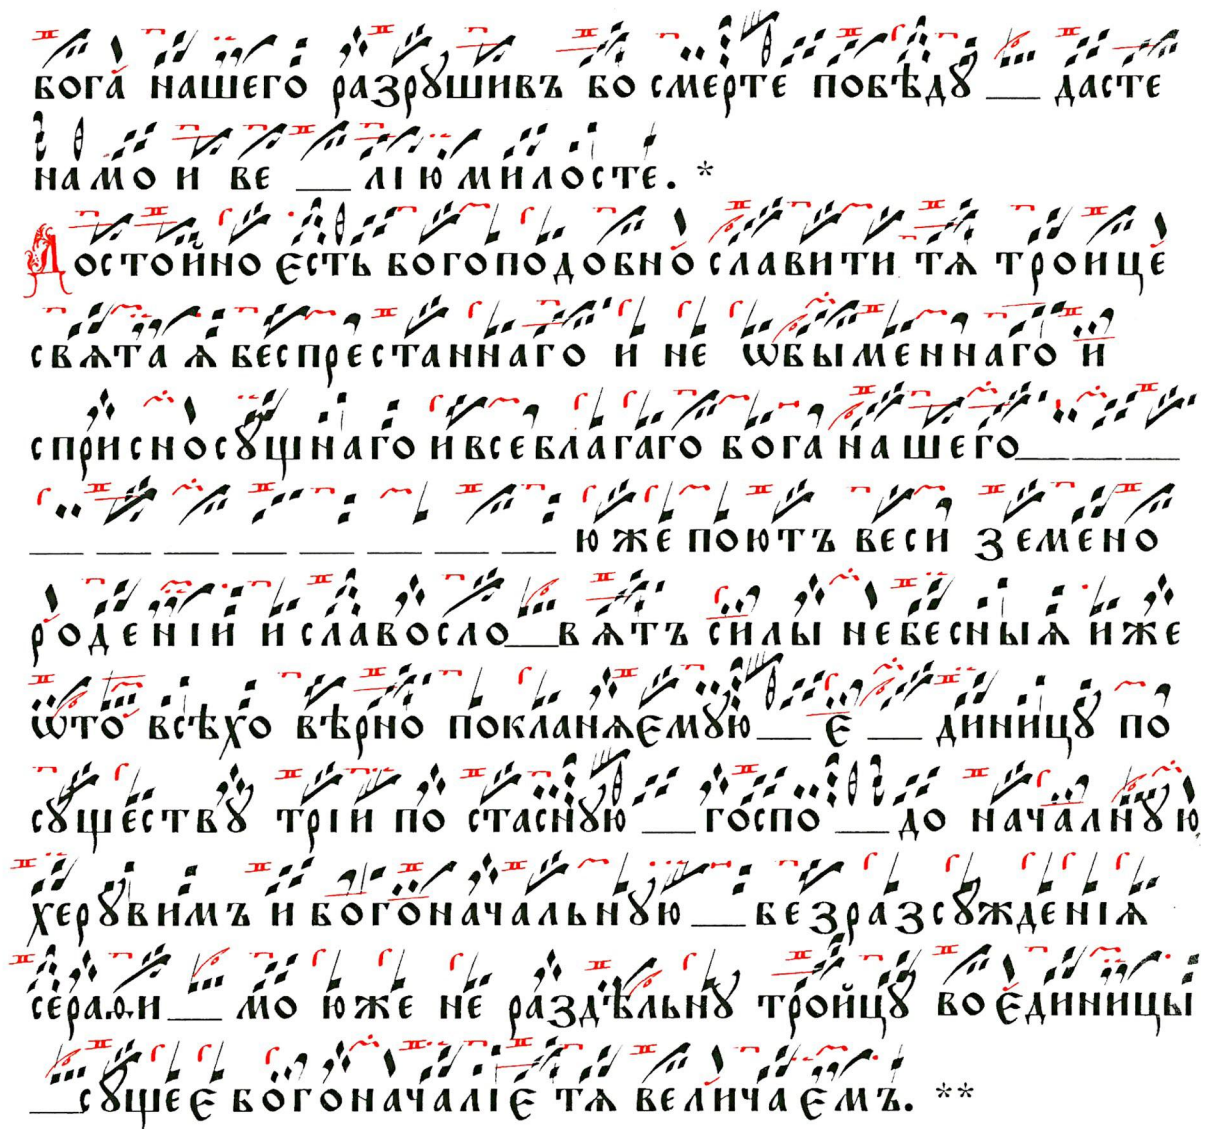 бога нашего разрꙋшивъ бо смерте побѣдꙋ __ дасте
намо и ве __ лію милосте. *
Достойно єсть богоподобно славити тѧ троице
свѧта ѧ беспрестаннаго и не ѡбыменнаго и
сприсносꙋщнаго ивсеблагаго бога нашего __ __ __
__ __ __ __ __ __ __ __ юже поютъ веси земено
роденіи и славосло__вѧтъ силы небесныѧ иже
ѡто всѣхо вѣрно покланѧємꙋю __ є __ диницꙋ по
сꙋществꙋ тріи по стаснꙋю __ госпо __ до началнꙋю,
херꙋвимъ и богоначальнꙋю __ безразсꙋжденіѧ
серафи __ мо юже не раздѣльнꙋ тройцꙋ во єдиницы
__ сꙋщеє богоначаліє тѧ величаємъ. **